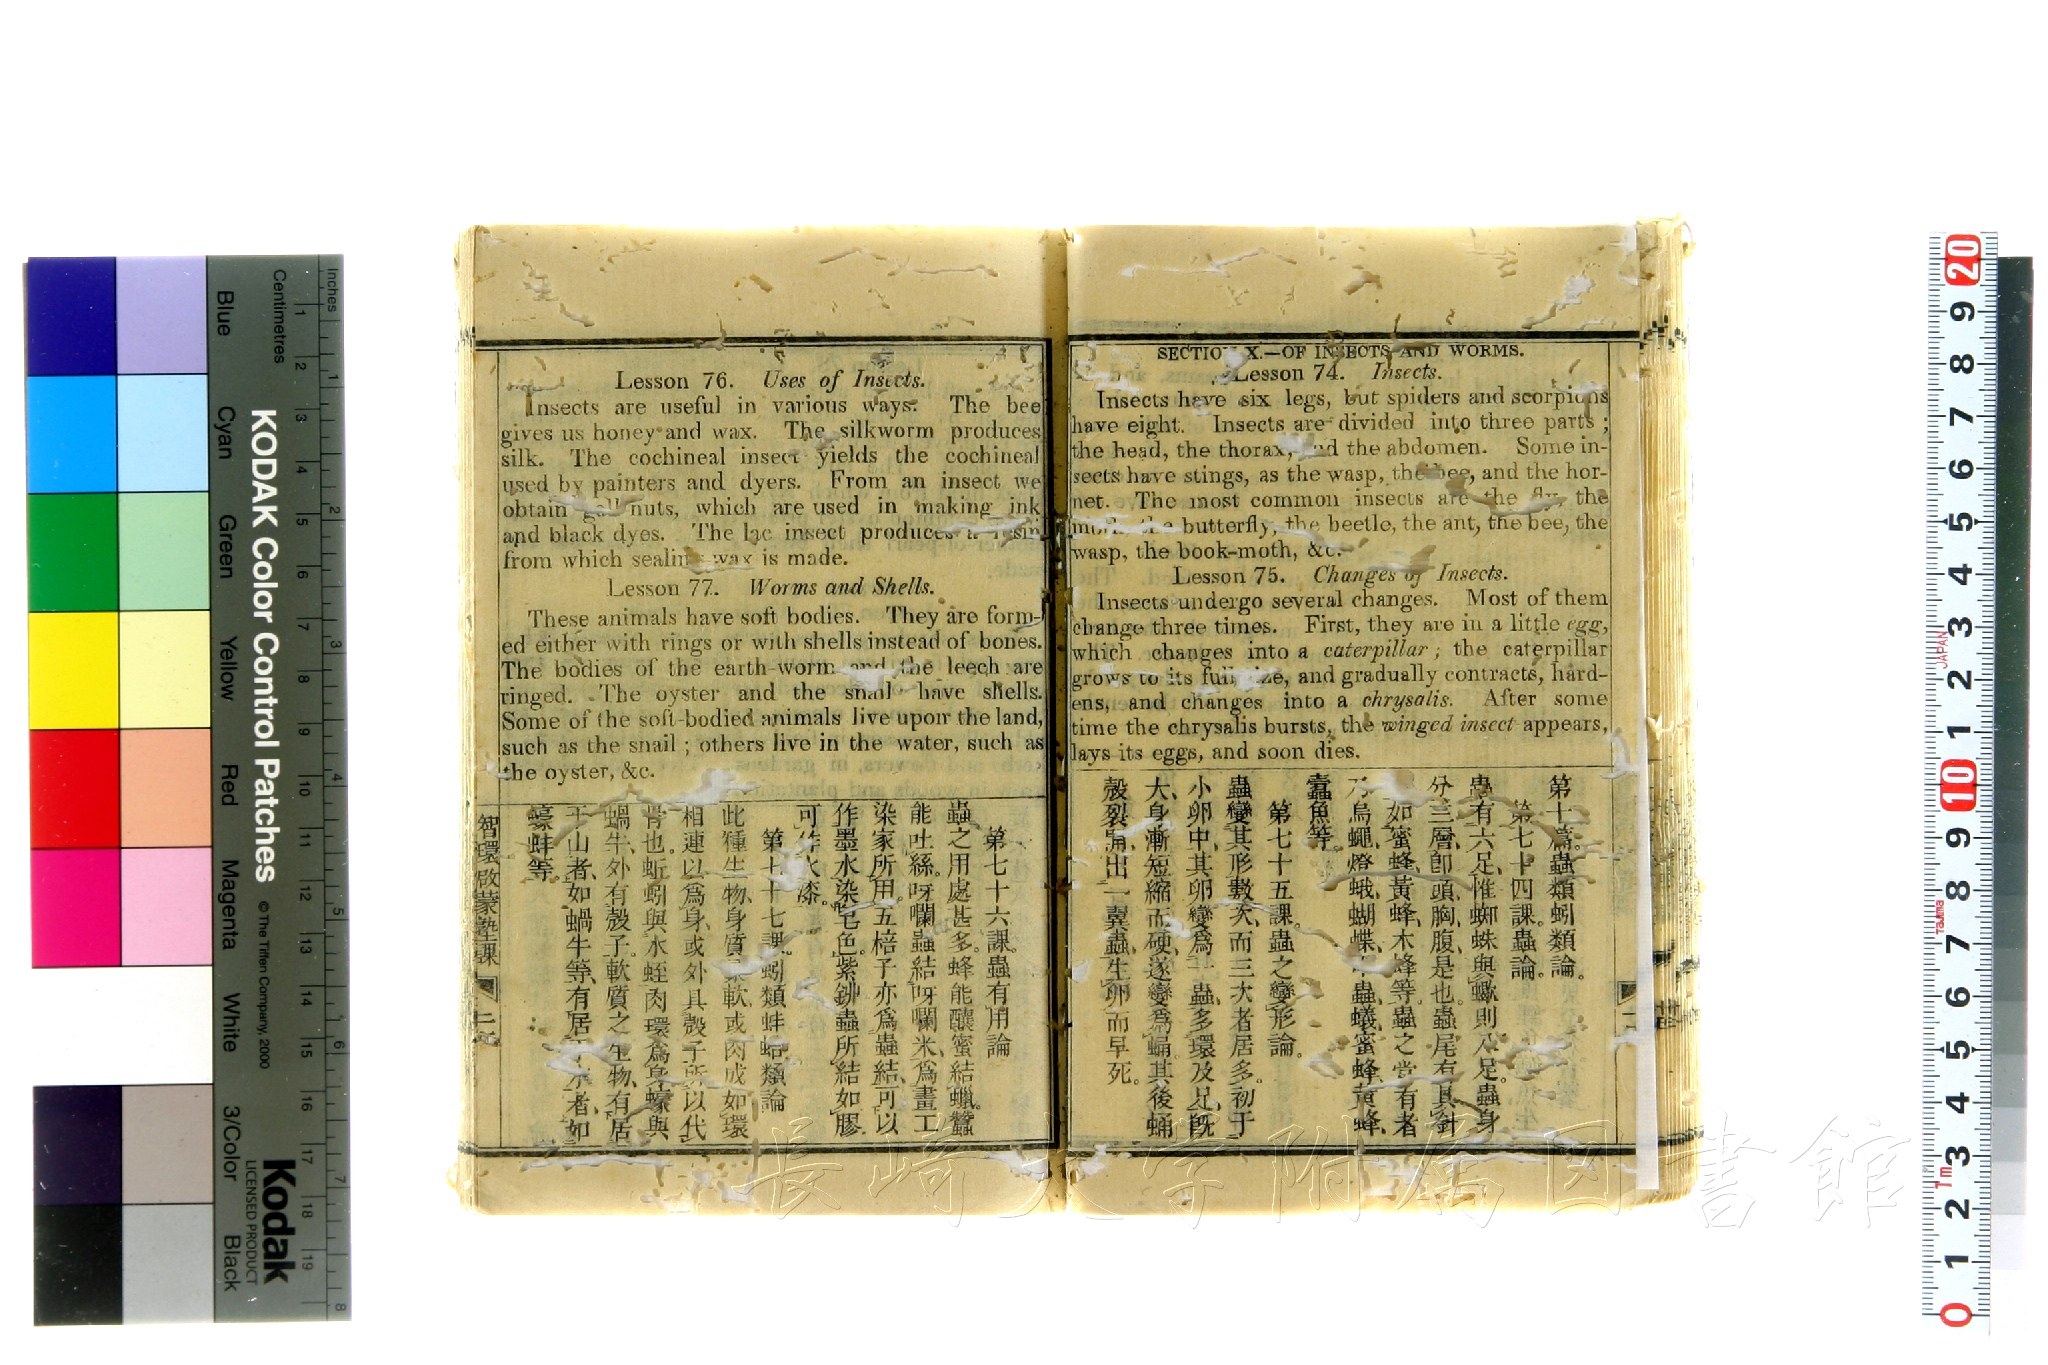 SECTION X.—OF INSECTS AND WORMS.
Lesson 74. Insects.
Insects have six legs, but spiders and scorpions
have eight. Insects are divided into three parts;
the head, the thorax, and the abdomen. Some in-
sects have stings, as the wasp, the bee, and the hor-
net. The most common insects are the fly, the
moth, the butterfly, the beetle, the ant, the bee, the
wasp, the book-moth, &c.
Lesson 75. Changes of Insects.
Insects undergo several changes. Most of them
change three times. First, they are in a little egg,
which changes into a caterpillar; the caterpillar
grows to its full size, and gradually contracts, hard-
ens, and changes into a chrysalis. After some
time the chrysalis bursts, the winged insect appears,
lays its eggs, and soon dies.
第十篇。蟲類蚓類論。
第七十四課。蟲論。
蟲有六足、惟蜘蛛與蠍則八足。蟲身
分三層、卽頭、胸、腹、是也。蟲尾有具針
如蜜蜂、黃蜂、木蜂等。蟲之常有者
乃烏蠅、燈蛾、蝴蝶、甲蟲、蟻、蜜蜂、黃蜂、
蠹魚等。
第七十五課。蟲之變形論。
蟲變其形數次、而三次者居多。初于
小卵中、其卵變爲一蟲、多環及足、旣
大、身漸短縮而硬、遂變爲蛹。其後蛹
殼裂、甭出一翼蟲、生卵而早死。
Lesson 76. Uses of Insects.
Insects are useful in various ways. The bee
gives us honey and wax. The silkworm produces
silk. The cochineal insect yields the cochineal
used by painters and dyers. From an insect we
obtain gall nuts, which are used in making ink
and black dyes. The lac insect produces a resin
from which sealing wax is made.
Lesson 77. Worms and Shells.
These animals have soft bodies. They are form-
ed either with rings or with shells instead of bones.
The bodies of the earth-worm and the leech are
ringed. The oyster and the snail have shells.
Some of the soft-bodied animals live upon the land,
such as the snail; others live in the water, such as
the oyster, &c.
第七十六課。蟲有用論
蟲之用處甚多。蜂能釀蜜結蠟。蠶
能吐絲。呀囒蟲結呀囒米、爲畫工
染家所用。五棓子亦爲蟲結、可以
作墨水染皂色。紫鉚蟲所結如膠、
可作火漆。
第七十七課。蚓類蚌蛤類論
此種生物、身質柔軟、或肉成如環
相連以爲身、或外具殼子、所以代
骨也。蚯蚓與水蛭、肉環爲身。蠔與
蝸牛、外有殼子。軟質之生物、有居
于山者、如蝸牛等、有居于水者、如
蠔蚌等。
智環啟蒙塾課
KODAK Color Control Patches
© The Tiffen Company, 2000
Kodak
LICENSED PRODUCT
Inches
Centimetres
Blue
Cyan
Green
Yellow
Red
Magenta
White
3/Color
Black
1 2 3 4 5 6 7 8 9 10 11 12 13 14 15 16 17 18 19
1 2 3 4 5 6 7 8
20 9 8 7 6 5 4 3 2 1 10 9 8 7 6 5 4 3 2 1 0
JAPAN
Tajima
1m
長崎大学附属図書館